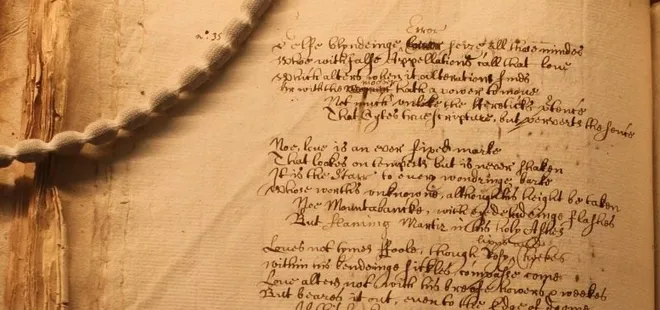 n°. 35
Error
Selfe blyndeinge seize all those mindes
Whoe with falce Appellations call that love
Which alters when it alterations finds
mover
Or with the hath a power to move
Not much unlike the Heretickes ptence
That Cytes true scripture, but perverts the sence
Noe, love is an ever fixed marke
That lookes on tempests but is never shaken
It is the Starr to every wondringe barke
Whose worth's unknowne, although his height be taken
Noe Mountabancke, with eie-deludeinge flashes
But flameing Martir in his holy Ashes
lipps and
Loves not tymes foole, though Rosy Cheekes
Within his bendeinge sickles compasse come
Love alters not with his breefe howers & weekes
But beares it out, even to the edge of doome